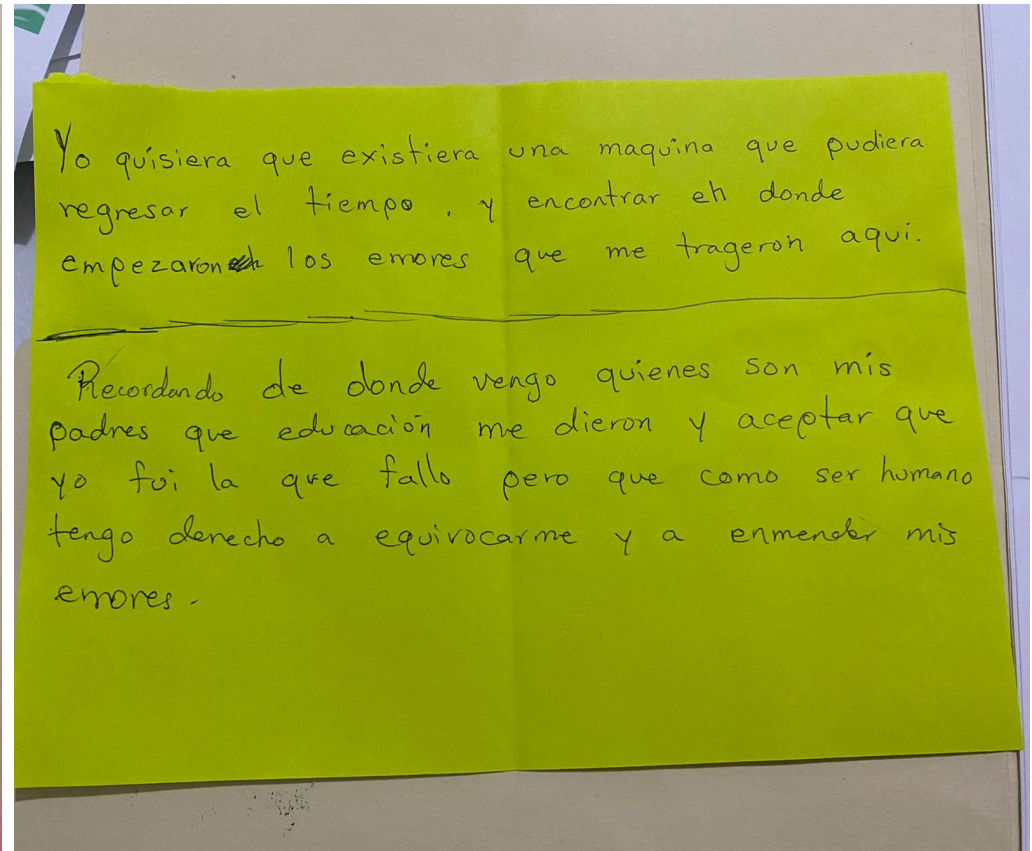 Yo quisiera que existiera una maquina que pudiera
regresar el tiempo, y encontrar en donde
empezaron los errores que me trageron aqui.
Recordando de donde vengo quienes son mis
padres que educación me dieron y aceptar que
yo fui la que fallo pero que como ser humano
tengo derecho a equivocarme y a enmendar mis
errores.